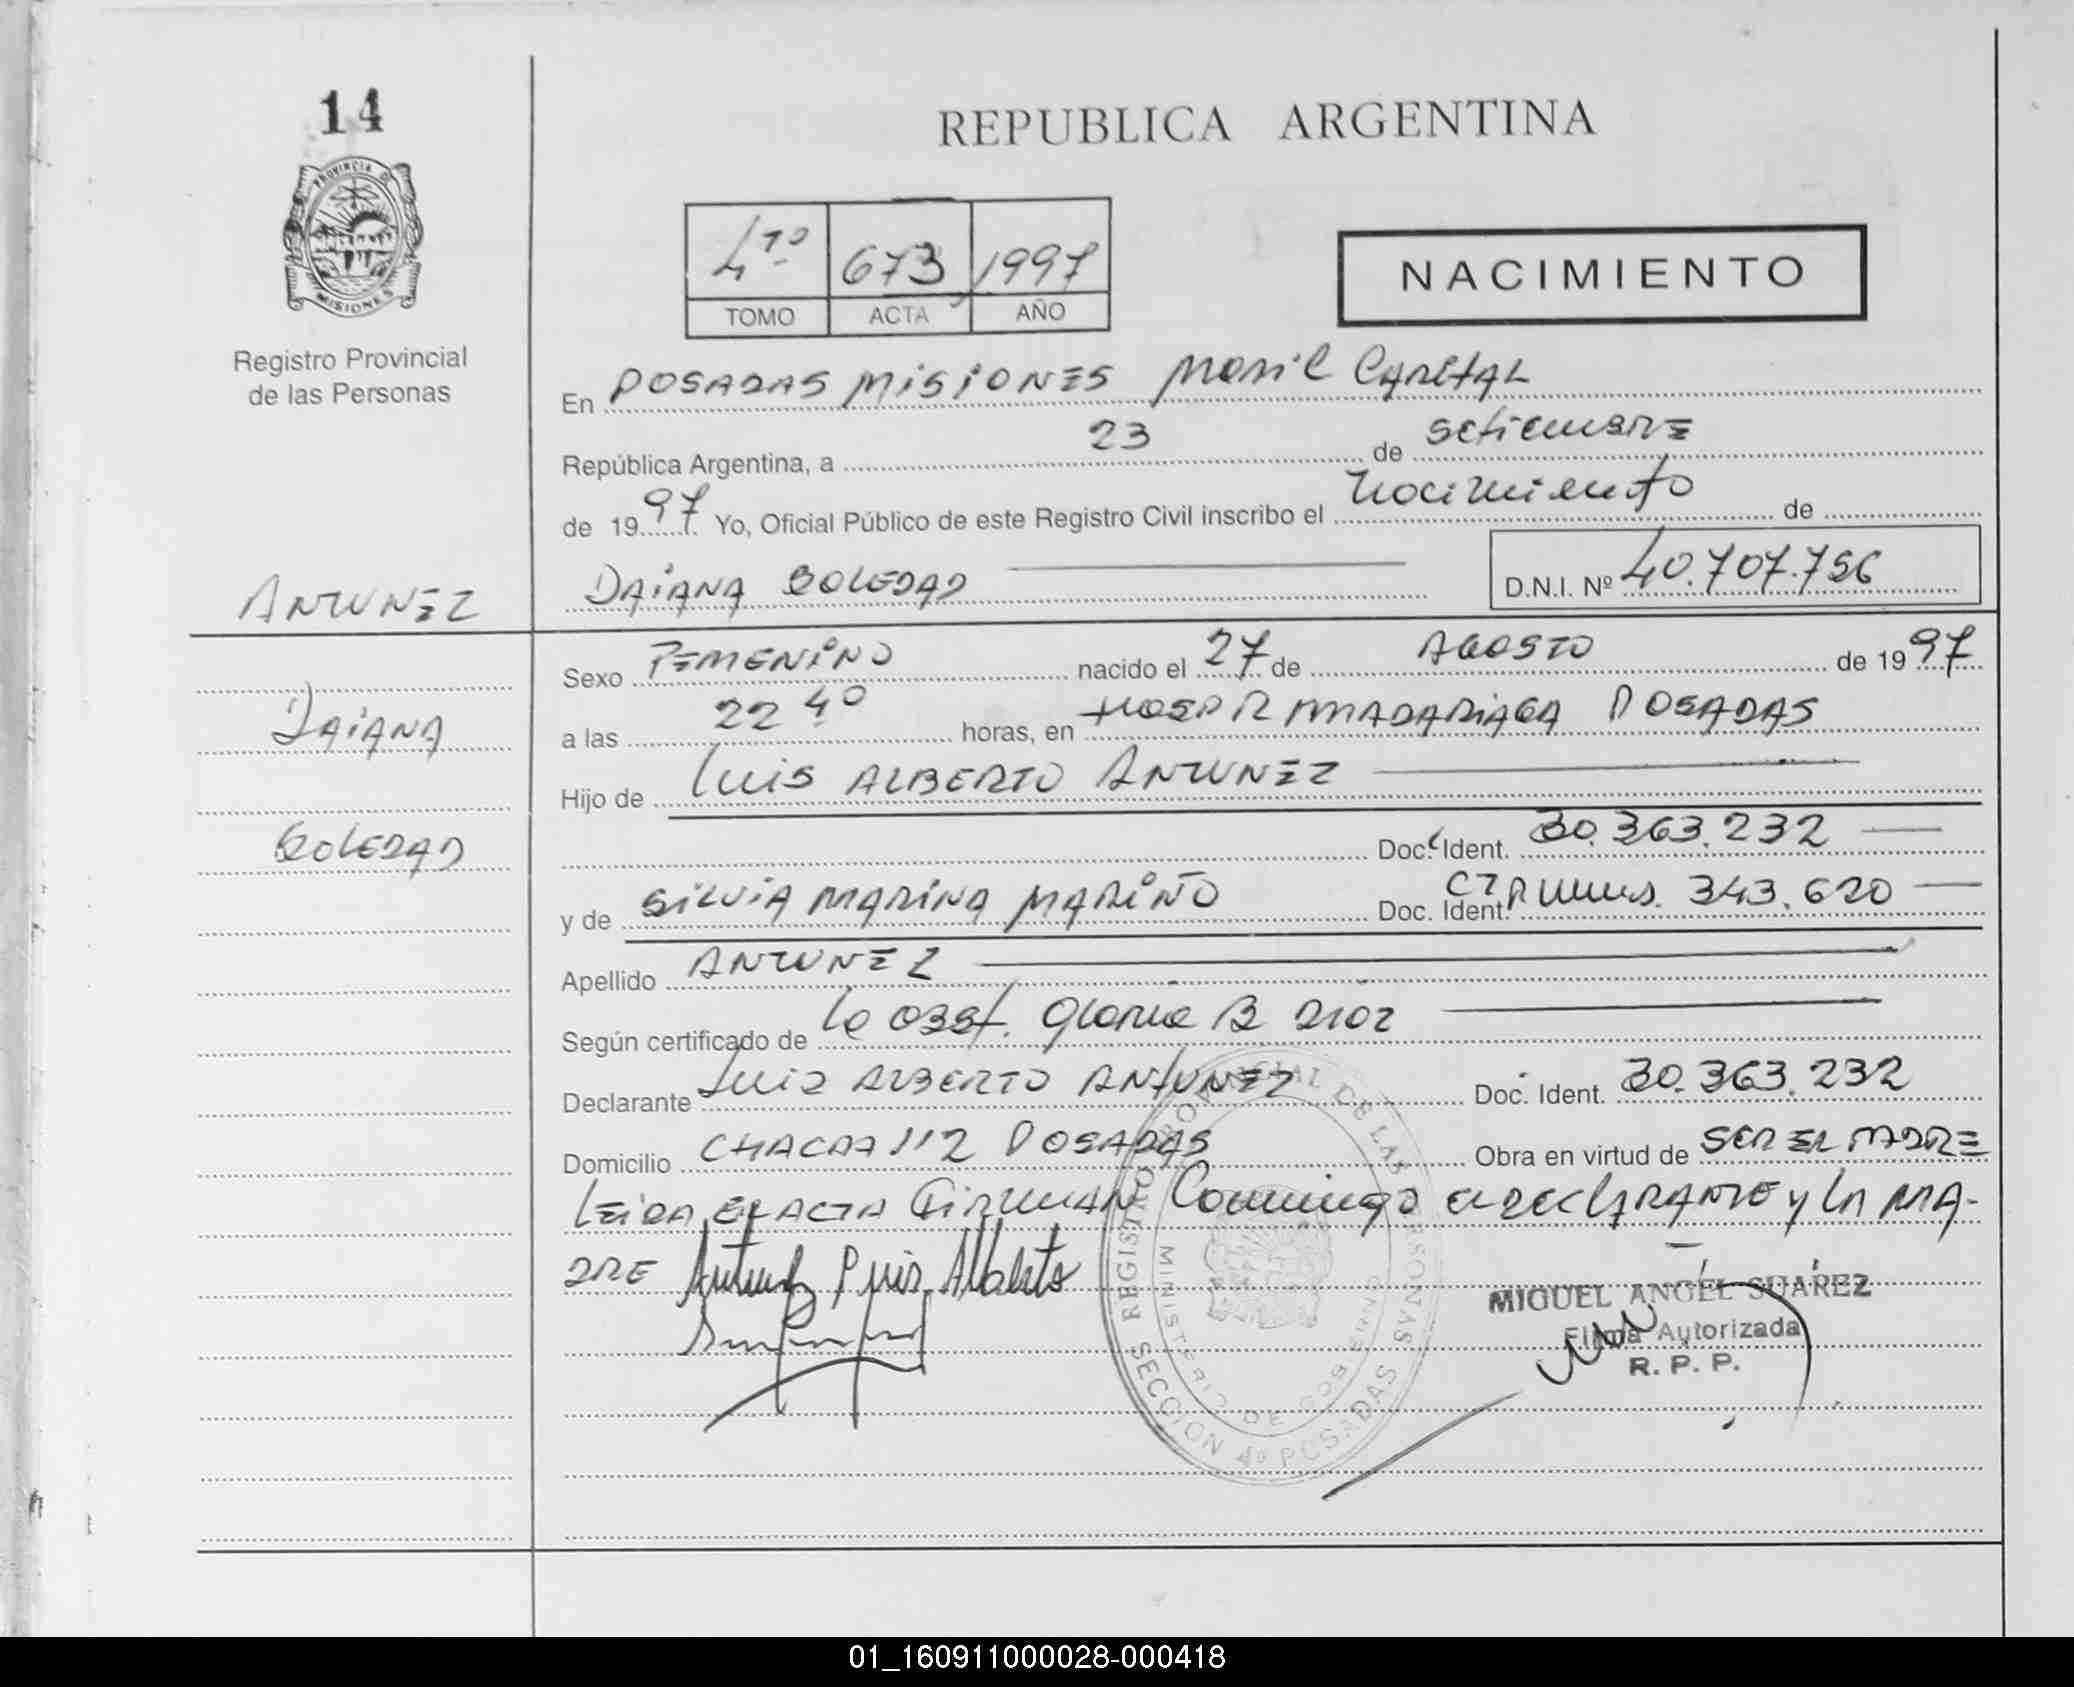 14
REPUBLICA ARGENTINA
PROVINCIA D
MISIONES
4to 673 1997
TOMO ACTA AÑO
NACIMIENTO
Registro Provincial
de las Personas
En POSADAS MISIONES Movil CAPITAL
República Argentina, a 23 de setiembre
de 1997 Yo, Oficial Público de este Registro Civil inscribo el nacimiento de
ANTUNEZ
DAIANA SOLEDAD D.N.I. Nº 40.707.756
Sexo FEMENINO nacido el 27 de AGOSTO de 1997
DAIANA
a las 22 40 horas, en HOSP R MADARIAGA POSADAS
Hijo de LUIS ALBERTO ANTUNEZ
SOLEDAD
Doc. Ident. 30.363.232
y de SILVIA MARINA MARIÑO Doc. Ident. 343.620
Apellido ANTUNEZ
Según certificado de la OBST. Gloria B DIOZ
Declarante Luis ALBERTO ANTUNEZ Doc. Ident. 30.363.232
Domicilio CHACRA 112 POSADAS Obra en virtud de SER EL PADRE
LEIDA EL ACTA FIRMAN Conmigo el DECLARANTE y LA MA-
DRE Antunez Luis Alberto
MIGUEL ANGEL SUAREZ
Firma Autorizada
R. P. P.
REGISTRO PROVINCIAL DE LAS PERSONAS
MINISTERIO DE GOBIERNO
SECCION 4º POSADAS
01_160911000028-000418